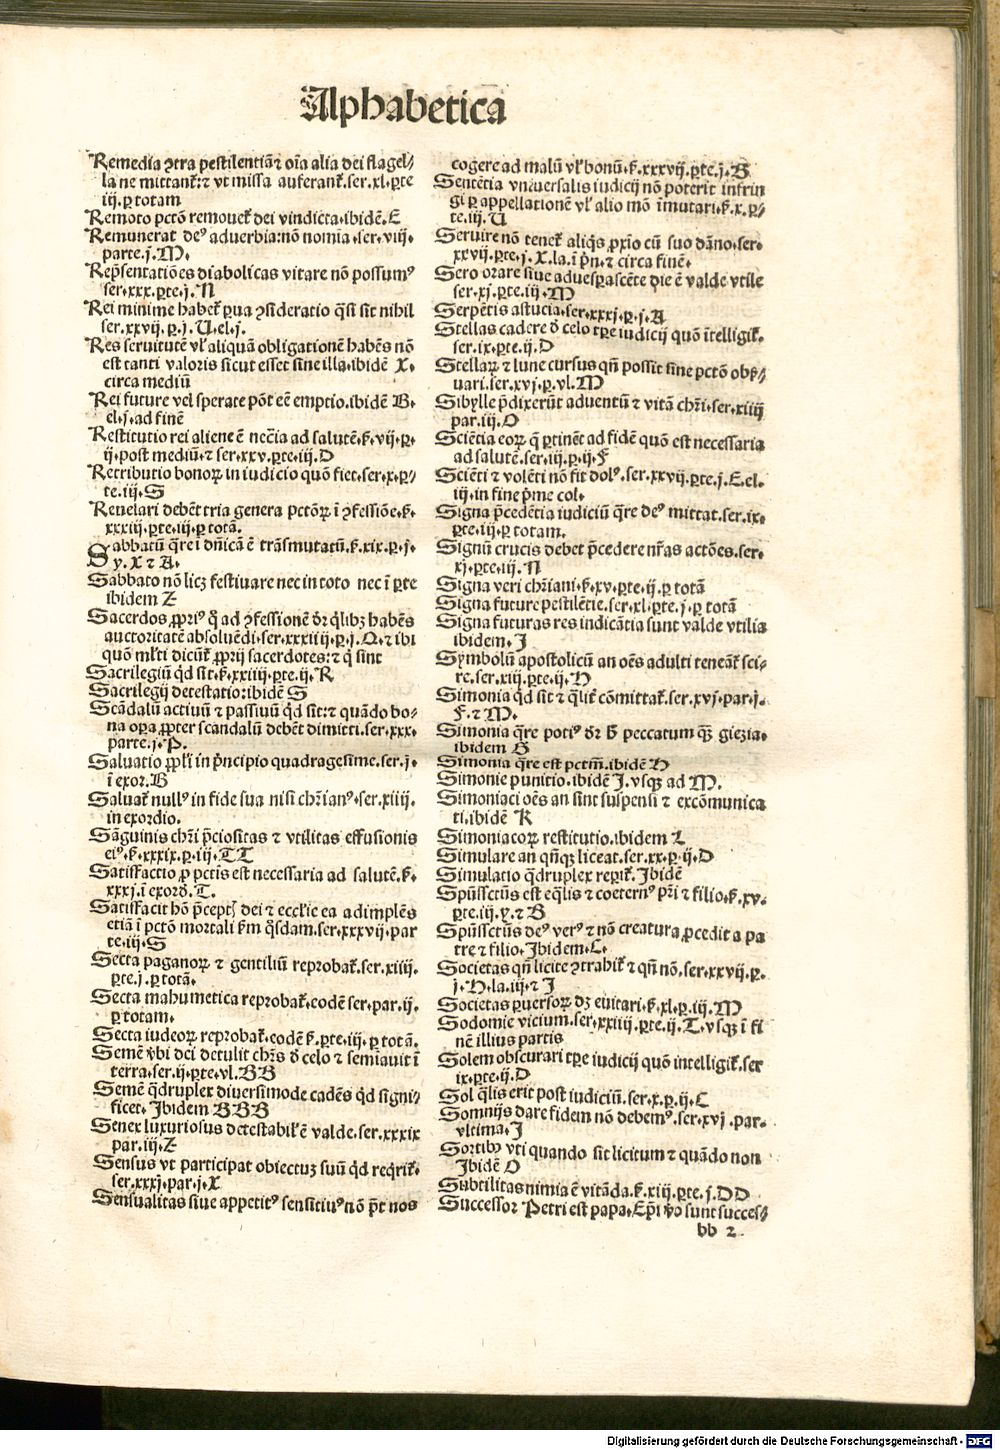 Alphabetica
Remedia ꝯtra pestilentiā ⁊ oīa alia dei flagel⸗
la ne mittant᷑: ⁊ vt missa auferant᷑.ser.xl.ꝑte
iij.ꝑ totam
Remoto pctō remouet᷑ dei vindicta.ibidē.E
Remunerat deꝰ aduerbia: nō nomia.ser.viij.
parte.j.M.
Rep̄sentatiōes diabolicas vitare nō possumꝰ
ser.xxx.ꝑte.j.N
Rei minime habet᷑ ꝑua ꝯsideratio q̄si sit nihil
ser.xxvij.ꝑ.j.V.el.j.
Res seruitutē vl̓ aliquā obligationē habēs nō
est tanti valoris sicut esset sine illa.ibidē X.
circa mediū
Rei future vel sperate pōt eē emptio.ibidē B.
el.j.ad finē
Restitutio rei aliene ē nec̄ia ad salutē.ẜ.vij.ꝑ.
ij.post mediū.⁊ ser.xxv.ꝑte.iij.D
Retributio bonoꝝ in iudicio quō fiet.ser.x.ꝑ⸗
te.iij.S
Reuelari debēt tria genera pctōꝝ ī ꝯfessiōe.ẜ.
xxxiij.ꝑte.iij.ꝑ totā.
Sabbatū q̄re ī dn̄icā ē trāsmutatū.ẜ.xix.ꝑ.j.
y.X ⁊ A.
Sabbato nō licꝫ festiuare nec in toto nec ī ꝑte
ibidem Z
Sacerdos ꝓpriꝰ q̄ ad ꝯfessionē dr̄ q̄libꝫ habēs
auctoritatē absoluēdi.ser.xxxiiij.ꝑ.j.Q.⁊ ibi
quō ml̓ti dicūt᷑ ꝓprij sacerdotes: ⁊ q̄ sint
Sacrilegiū qd̄ sit.ẜ.xxiiij.ꝑte.ij.R
Sacrilegij detestatio: ibidē S
Scādalū actiuū ⁊ passiuū qd̄ sit: ⁊ quādo bo⸗
na oꝑa ꝓpter scandalū debēt dimitti.ser.xxx.
parte.j.P.
Saluatio ppl̓i in p̄ncipio quadragesime.ser.j.
ī exor.B
Saluat᷑ nullꝰ in fide sua nisi chr̄ianꝰ.ser.xiiij.
in exordio.
Sāguinis chr̄i p̄ciositas ⁊ vtilitas effusionis
eiꝰ.ẜ.xxxix.ꝑ.iij.TT
Satisfactio ꝓ pctīs est necessaria ad salutē.ẜ.
xxxj.ī exord̄.T.
Satisfacit hō p̄cepti dei ⁊ eccl̓ie ea adimplēs
etiā ī pctō mortali ẜm q̄sdam.ser.xxxvij.par
te.iij.S
Secta paganoꝝ ⁊ gentiliū reprobat᷑.ser.xiiij.
ꝑte.j.ꝑ totā.
Secta mahumetica reprobat᷑.eodē ser.par.ij.
ꝑ totam.
Secta iudeoꝝ reprobat᷑.eodē ẜ.ꝑte.iij.ꝑ totā.
Semē v̄bi dei detulit chr̄s d̄ celo ⁊ semiauit ī
terra.ser.ij.ꝑte.vl.BB
Semē q̄druplex diuersimode cadēs qd̄ signi⸗
ficet.Ibidem BBB
Senex luxuriosus detestabil̓ ē valde.ser.xxxix
par.iij.Z
Sensus vt participat obiectuꝫ suū qd̄ reqrit᷑.
ser.xxxj.par.j.X
Sensualitas siue appetitꝰ sensitiuꝰ nō p̄t nos
cogere ad malū vl̓ bonū.ẜ.xxxvij.ꝑte.j.B
Sentētia vniuersalis iudicij nō poterit infrin
gi ꝑ appellationē vl̓ alio mō īmutari.ẜ.x.ꝑ⸗
te.iij.V
Seruire nō tenet᷑ aliq̄s ꝓxīo cū suo dāno.ser.
xxvij.ꝑte.j.X.la.ī p̄n.⁊ circa finē.
Sero orare siue aduesꝑascēte die ē valde vtile
ser.xj.ꝑte.iij.M
Serpētis astucia.ser.xxxj.ꝑ.j.A
Stellas cadere d̄ celo tꝑe iudicij quō ītelligit᷑.
ser.ix.ꝑte.ij.D
Stellaꝝ ⁊ lune cursus qn̄ possit sine pctō obẜ⸗
uari.ser.xvj.ꝑ.vl.M
Sibylle p̄dixerūt aduentū ⁊ vitā chr̄i.ser.xiiij
par.iij.O
Sciētia eoꝝ q̄ ꝑtinēt ad fidē quō est necessaria
ad salutē.ser.iij.ꝑ.ij.F
Sciēti ⁊ volēti nō fit dolꝰ.ser.xxvij.ꝑte.j.E.el.
iij.in fine p̄me col.
Signa p̄cedētia iudiciū q̄re deꝰ mittat.ser.ix.
ꝑte.iij.ꝑ totam.
Signū crucis debet p̄cedere nr̄as actōes.ser.
xj.ꝑte.iij.N
Signa veri chr̄iani.ẜ.xv.ꝑte.ij.ꝑ totā
Signa future pestilētie.ser.xl.ꝑte.j.ꝑ totā
Signa futuras res indicātia sunt valde vtilia
ibidem.I
Symbolū apostolicū an oēs adulti teneāt᷑ sci⸗
re.ser.xij.ꝑte.ij.H
Simonia qd̄ sit ⁊ q̄lit᷑ cōmittat᷑.ser.xvj.par.j.
F.⁊ M.
Simonia q̄re potiꝰ dr̄ h̄ peccatum qꝫ giezia.
ibidem G
Simonia q̄re est pctm̄.ibidē H
Simonie punitio.ibidē I.vsqꝫ ad M.
Simoniaci oēs an sint suspensi ⁊ excōmunica
ti.ibidē K
Simoniacoꝝ restitutio.ibidem L
Simulare an qn̄qꝫ liceat.ser.xx.ꝑ.ij.D
Simulatio q̄druplex reꝑit᷑.Ibidē
Spūssctūs est eq̄lis ⁊ coeternꝰ pr̄i ⁊ filio.ẜ.xv.
ꝑte.iij.y.⁊ B
Spūssctūs deꝰ verꝰ ⁊ nō creatura ꝓcedit a pa
tre ⁊ filio.Ibidem.C.
Societas qn̄ licite ꝯtrahit᷑ ⁊ qn̄ nō.ser.xxvij.ꝑ.
j.H.la.iij.⁊ I
Societas ꝑuersoꝝ dꝫ euitari.ẜ.xl.ꝑ.iij.M
Sodomie vicium.ser.xxiiij.ꝑte.ij.T.vsqꝫ ī fi
nē illius partis
Solem obscurari tꝑe iudicij quō intelligit᷑.ser
ix.ꝑte.ij.D
Sol q̄lis erit post iudiciū.ser.x.ꝑ.ij.C
Somnijs dare fidem nō debemꝰ.ser.xvj.par.
vltima.I
Sortibꝰ vti quando sit licitum ⁊ quādo non
Ibidē O
Subtilitas nimia ē vitāda.ẜ.xiij.ꝑte.j.DD
Successor Petri est papa.Ep̄i v̄o sunt succes⸗
bb 2
Digitalisierung gefördert durch die Deutsche Forschungsgemeinschaft - DFG